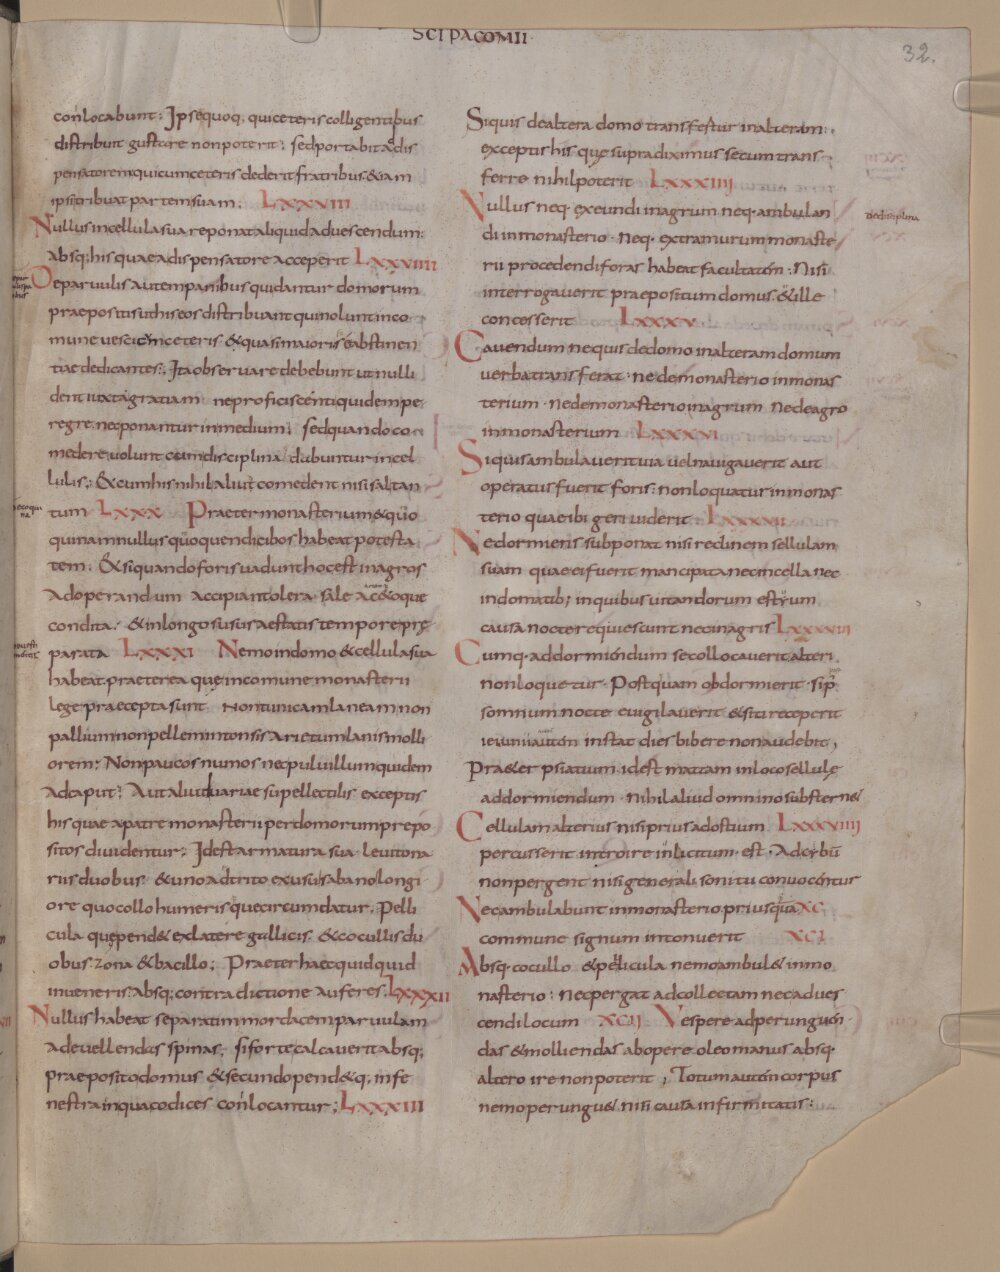 SCI PACOMII
32.
conlocabunt; Ipsequoq; quiceteris colligentibus
distribuit gustare nonpoterit; sedportabit addis
pensatorem quicumceteris dederit fratribus &iam
ipsi tribuat partem suam; LXXXVIII
Nullus incellula sua reponat aliquid aduescendum;
Absq; his quae adispensatore acceperit LXXVIIII
Deparuulis autempanibus quidantur domorum
praepositis ut hi seos distribuant quinolunt inco
mune vesci cum ceteris &quasi maioris se abstinen
tiae dedicantes; Ita observare debebunt ut nulli
dent iuxta gratiam neproficiscenti quidem pe
regre. necponantur inmedium; sedquando co
medere uoluntcum disciplina dabuntur incel
lulis; &cumhis nihil aliut comedent nisi saltan
tum LXXX Praeter monasterium & quo
quinam nullus quoquendi cibos habeat potesta
tem; &si quando foris uadunt hoc est inagros
Adoperandum accipiant olera sale ac & oque
condita &inlongo susus aestatis tempore pre
parata LXXXI Nemo indomo &cellula sua
habeat. praeterea que incomune monasterii
lege praecepta sunt Non tunicam laneam non
pallium non pellem intonsis arietum lanis molli
orem; Nonpaucos numos necpuluillum quidem
Adcaput; Aut aliut uariae supellectilis exceptis
his quae apatre monasterii perdomorum prepo
sitos diuidentur; Idest armatura sua leuitona
riis duobus &uno adtrito ex usu sabano longi
ore quo collo humerisque circumdatur. Pelli
cula que pend& exlatere gallicis &cocullis du
obus zona &bacillo; Praeter haec quidquid
inueneris absq; contradictione auferes. LXXXII
Nullus habeat separatim mordacem paruulam
Adeuellendas spinas; siforte calcaverit absq;
praeposito domus &secundo pend&q; infe
nestra inqua codices conlocantur; LXXXIII
Siquis dealtera domo transfertur inalteram;
exceptis his que supradiximus secum trans
ferre nihil poterit LXXXIIII
Nullus neq. exeundi inagrum neq. ambulan
di inmonasterio. neq. extra murum monaste
rii procedendi foras habeat facultatem. Nisi
interrogaverit praepositum domus &ille
concesserit LXXXV
Cauendum nequis dedomo inalteram domum
uerba transferat. ne demonasterio inmonas
terium. nedemonasterio inagrum nedeagro
inmonasterium LXXXVI
Siquis ambulauerit uia uelnauigauerit aut
operatus fuerit foris: nonloquatur inmonas
terio quae ibi geri uiderit LXXXVII
Nedormiens subponat nisi reclinem sellulam
suam quae ei fuerit mancipata necincella nec
indomatib; inquibus uitandorum estuum
causa nocte requiescunt necinagris LXXXVIII
Cumq. addormiendum secollocauerit alteri
nonloquetur. Postquam obdormierit si p
somnum nocte euigilauerit &siti receperit
ieiunii autem instat dies bibere nonaudebit;
Pra&er psiatium idest mattam inloco sellule
addormiendum. nihil aliud omnino substern&
Cellulam alterius nisi prius adostium LXXXVIIII
percusserit introire inlicitum. est. Adcibum
nonpergent nisi generali sonitu conuocentur
Necambulabunt inmonasterio priusquam XC
commune signum intonuerit XCI
Absq. cocullo &pellicula nemo ambul& inmo
nasterio: necpergat adcollectam necadues
cendi locum XCII Vespere adperunguen
das &molliendas abopere oleo manus absq.
altero ire nonpoterit; Totum autem corpus
nemo perungu& nisi causa infirmitatis:
dedisciplina